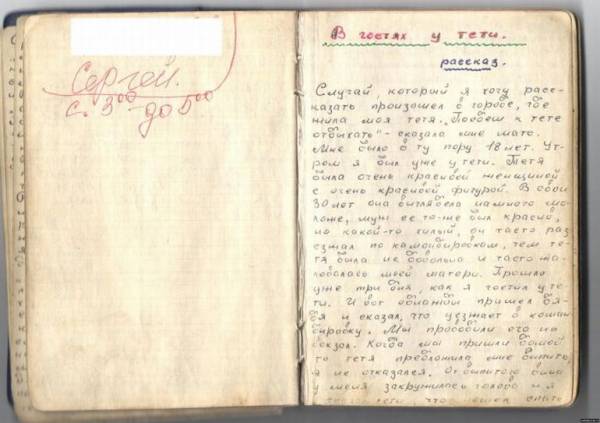 Сергей.
с. 3⁰⁰ до 5⁰⁰
В гостях у тёти.
рассказ.
Случай, который я хочу расс-
казать произошел в городе, где
жила моя тетя. "Поедеш к тете
отдыхать" - сказала мне мать.
Мне было в ту пору 18 лет. Ут-
ром я был уже у тети. Тетя
была очень красивой женщиной
с очень красивой фигурой. В свои
30 лет она выглядела намного мо-
ложе, муж ее то-же был красив,
но какой-то хилый, он часто раз
езжал по командировкам, чем те-
тя была не довольна и часто жа-
ловалась моей матери. Прошло
уже три дня, как я гостил у те-
ти. И вот однажды пришел дя-
дя и сказал, что уезжает в коман
дировку. Мы проводили его на
вокзал. Когда мы пришли домой
то тетя предложила мне выпить,
я не отказался. От выпитого вина
у меня закружилась голова и я
тети, что пошел спать